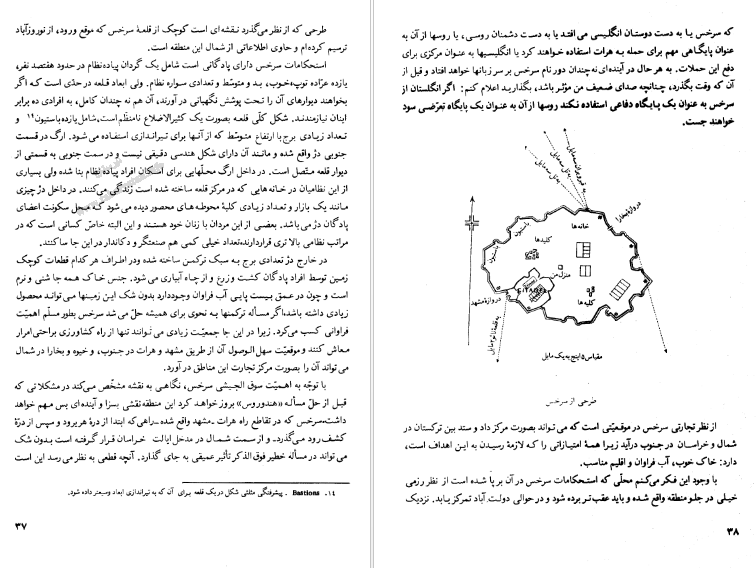 طرحی که از نظر میگذرد نقشه‌ای است کوچک از قلعهٔ سرخس که موقع ورود، از نوروزآباد
ترسیم کرده‌ام و حاوی اطلاعاتی از شمال این منطقه است.
استحکامات سرخس دارای پادگانی است شامل یک گردان پیاده نظام در حدود هفتصد نفر،
یازده عرّاده توپ خوب، بد و متوسّط و تعدادی سواره نظام. ولی ابعاد قلعه در حدّی است که اگر
بخواهند دیوارهای آن را تحت پوشش نگهبانی در آورند، آن هم نه چندان کامل، به افرادی ده برابر
اینان نیازمندند. شکل کلّی قلعه بصورت یک کثیرالاضلاع نامنظّم است، شامل یازده باستیون۱۴ و
تعداد زیادی برج با ارتفاع متوسّط که از آنها برای تیراندازی استفاده می شود. ارگ در قسمت
جنوبی دژ واقع شده و مانند آن دارای شکل هندسی دقیقی نیست و در سمت جنوبی به قسمتی از
دیوار قلعه متّصل است. در داخل ارگ محلّهایی برای اسکان افراد پیاده نظام بنا شده ولی بسیاری
از این نظامیان در خانه‌هایی که در مرکز قلعه ساخته شده است زندگی می‌کنند. در داخل دژ چیزی
مانند یک بازار و تعداد زیادی کلبهٔ محوطه‌های محصور دیده می شود که محل سکونت اعضای
پادگان دژ می باشد. بعضی از این مردان با زنان خود هستند و این البته خاصّ کسانی است که در
مراتب نظامی بالا تری قرار دارند، تعداد خیلی کمی هم صنعتگر و دکاندار در این جا سا کنند.
در خارج دژ تعدادی برج به سبک ترکمن ساخته شده و در اطراف هر کدام قطعات کوچک
زمین توسط افراد پادگان کشت و زرع و از چاه آبیاری می شود. جنس خاک همه جا شنی و نرم
است و چون در عمق بیست پایی آب فراوان وجود دارد بدون شک این زمینها می توانند محصول
زیادی داشته باشد، اگر مسأله ترکمنها به نحوی برای همیشه حلّ می شد سرخس بطور مسلّم اهمیّت
فراوانی کسب می‌کرد. زیرا در این جا جمعیّت زیادی می توانند تنها از راه کشاورزی براحتی امرار
معاش کنند و موقعیّت سهل الوصول آن از طریق مشهد و هرات در جنوب، و خیوه و بخارا در شمال
می تواند آن را بصورت مرکز تجارت این مناطق در آورد.
با توجّه به اهمیّت سوق الجیشی سرخس، نگاهی به نقشه مشخّص می‌کند در مشکلاتی که
قبل از حلّ مسألهٔ «هندوروس» بروز خواهد کرد این منطقه نقشی بسزا و آینده ای بس مهم خواهد
داشت. سرخس که در تقاطع راه هرات ـ مشهد واقع شده ـ راهی که ابتدا از درهٔ هریرود و سپس از درّهٔ
کشف رود می‌گذرد ـ و از سمت شمال در مدخل ایالت خراسان قرار گرفته است بدون شک
می تواند در مسأله خطیر فوق الذکر تأثیر عمیقی به جای گذارد. آنچه قطعی به نظر می رسد این است
۱۴- Bastions. پیشرفتگی مثلثی شکل در یک قلعه برای آن که به تیراندازی ابعاد وسیعتر داده شود.
۳۷
که سرخس یا به دست دوستان انگلیسی می افتد یا به دست دشمنان روسی، یا روسها از آن به
عنوان پایگاهی مهم برای حمله به هرات استفاده خواهند کرد یا انگلیسیها به عنوان مرکزی برای
دفع این حملات. به هر حال در آینده‌ای نه چندان دور نام سرخس بر سر زبانها خواهد افتاد و قبل از
آن که وقت بگذرد، چنانچه صدای ضعیف من مؤثّر باشد، بگذارید اعلام کنم: اگر انگلستان از
سرخس به عنوان یک پایگاه دفاعی استفاده نکند روسها از آن به عنوان یک پایگاه تعرّضی سود
خواهند جست.
دروازهٔ بخارا
خانه‌ها
کلبه‌ها
منزل من
دروازهٔ مشهد
کلبه‌ها
مقیاس ۵ اینچ به یک مایل
طرحی از سرخس
از نظر تجارتی سرخس در موقعیّتی است که می تواند بصورت مرکز داد و ستد بین ترکستان در
شمال و خراسان در جنوب درآید زیرا همهٔ امتیازاتی را که لازمهٔ رسیدن به این اهداف است،
دارد: خاک خوب، آب فراوان و اقلیم مناسب.
با وجود این فکر می‌کنم محلّی که استحکامات سرخس در آن بر پا شده است از نظر رزمی
خیلی در جلو منطقه واقع شده و باید عقب تر برده شود و در حوالی دولت آباد تمرکز یابد. نزدیک
۳۸